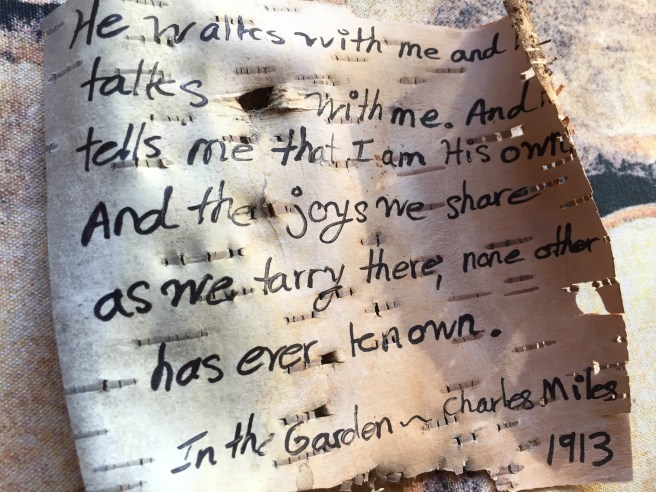 He walks with me and h
talks with me. And h
tells me that I am His own
And the joys we share
as we tarry there, none other
has ever known.
In the Garden ~ Charles Miles
1913